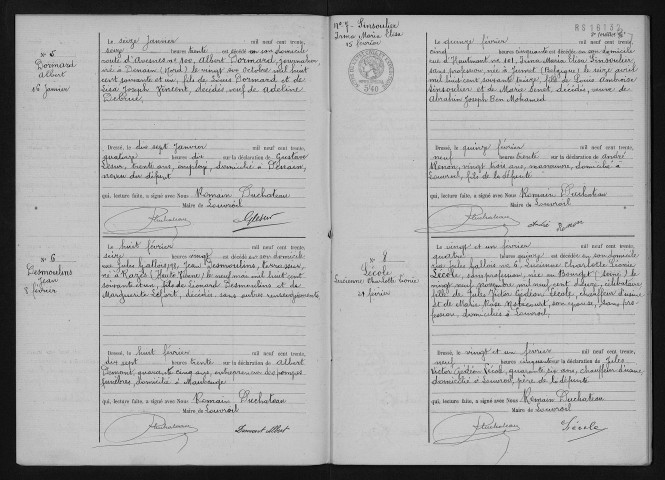 N° 5
Dormard
Albert
16 Janvier
Le seize janvier mil neuf cent trente,
seize heures trente est décédé en son domicile
route d'Avesnes n° 100, Albert Dormard,
né à Denain (Nord) le vingt six octobre mil huit
cent soixante et un, fils de Louis Dormard et de
Lisa Joseph Vincent, décédés, veuf de Adeline
Dressé, le dix sept janvier mil neuf cent trente,
quatorze heures dix sur la déclaration de Gustave
trente ans, employé, domicilié à Denain,
neveu du défunt
qui, lecture faite, a signé avec Nous Romain Duchateau
Maire de Louvroil
RDuchateau
N° 6
Desmoulins
Jean
8 février
Le huit février mil neuf cent trente,
seize heures vingt est décédé en son domicile
rue Jules Gallois, Jean Desmoulins, terrassier,
né à Razès (Haute Vienne) le neuf mai mil huit cent
soixante et un, fils de Léonard Desmoulins et de
Marguerite Lefort, décédés, sans autres renseignements
Dressé, le huit février mil neuf cent trente,
dix sept heures trente sur la déclaration de Albert
quarante cinq ans, entrepreneur de pompes
funèbres, domicilié à Maubeuge
qui, lecture faite, a signé avec Nous Romain Duchateau
Maire de Louvroil
RDuchateau
Albert
N° 7 - Sinsoulier
Irma Maria Elisa
15 février
Le quinze février mil neuf cent trente,
cinq heures cinquante est décédée en son domicile
rue d'Hautmont n° 101, Irma Maria Elisa Sinsoulier
sans profession, née à Jumet (Belgique) le seize avril
mil huit cent soixante fille de Louis Ambroise
Sinsoulier et de Marie Genet, décédés, veuve de
Abraham Joseph Ben Mohamed
Dressé, le quinze février mil neuf cent trente,
neuf heures trente sur la déclaration de André
vingt trois ans, manœuvre, domicilié à
Louvroil, fils de la défunte
qui, lecture faite, a signé avec Nous Romain Duchateau
Maire de Louvroil
RDuchateau
André
N° 8
Lécole
Lucienne Charlotte Léonie
21 février
Le vingt et un février mil neuf cent trente,
quatre heures quinze, est décédée en son domicile
rue Jules Gallois Lucienne Charlotte Léonie
Lécole, sans profession, née au Bourget (Seine) le
vingt neuf novembre mil neuf cent célibataire
fille de Jules Victor Gédéon Lécole, chauffeur d'usine
et de Marie Rose son épouse, sans pro-
fession, domiciliés à Louvroil,
Dressé, le vingt et un février mil neuf cent trente,
neuf heures cinquante sur la déclaration de Jules
Victor Gédéon Lécole, quarante six ans, chauffeur d'usine
domicilié à Louvroil, père de la défunte
qui, lecture faite, a signé avec Nous Romain Duchateau
Maire de Louvroil
RDuchateau
Lécole